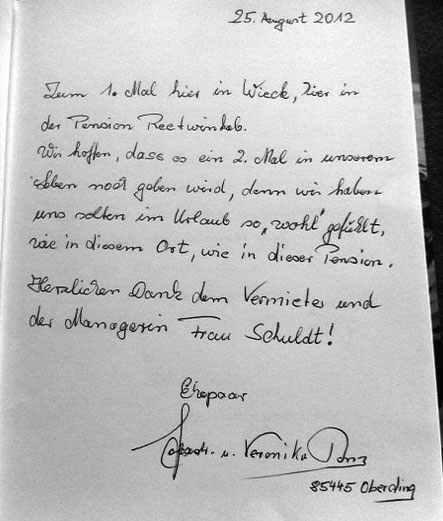 25. August 2012
Zum 1. Mal hier in Wieck, hier in
der Pension Reetwinkel.
Wir hoffen, dass es ein 2. Mal in unserem
Leben noch geben wird, denn wir haben
uns selten im Urlaub so "wohl" gefühlt,
wie in diesem Ort, wie in dieser Pension.
Herzlichen Dank dem Vermieter und
der Managerin Frau Schuldt!
Ehepaar
u. Veronika
85445 Oberding